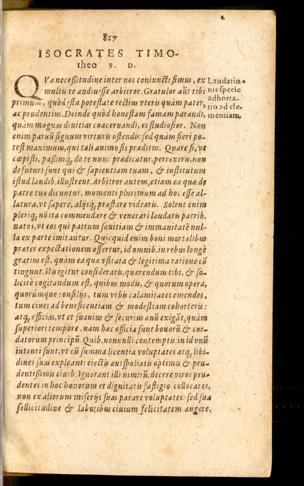 817
ISOCRATES TIMO-
theo S. D.
QVa necessitudine inter nos coniuncti simus, ex
multis te audiuisse arbitror. Gratulor aũt tibi
primum, quòd ista potestate rectius vteris quàm pater,
ac prudentius. Deinde quòd honestam famam parandi,
quàm magnas diuitias coaceruandi, es studiosior. Non
enim paruũ signum virtutis ostendis: sed quàm fieri po-
test maximum, qui tali animo sis praeditus. Quare si, vt
cupisti,
defuturi sunt qui & sapientiam tuam, & institutum
istud laudib. illustrent. Arbitror autem, etiam ea quae de
patre tuo dicuntur, momenti plurimum ad hoc esse al-
latura, vt sapere, alijsq́; praestare videaris. Solent enim
pleriq; nõ ita commendare & venerari laudatis patrib.
natos, vt eos qui patrum saeuitiam & immanitatẽ nul-
la ex parte imitantur. Quicquid enim boni mortalibus
praeter expectationem offertur, id omnib. in rebus longè
gratius est, quàm ea quae vsitata & legitima ratione cõ
tingunt. Illa igitur consideratis, quaerendum tibi, & so-
licitè cogitandum est, quibus modis, & quorum opera,
quorúmque consilijs, tum vrbis calamitates emendes,
tum ciues ad beneficentiam & modestiam cohorteris:
atq; efficias, vt et suauius & securius aeuũ exigãt, quàm
superiori tempore. nam haec officia sunt bonorũ & cor-
datorum principũ. Quib. nonnulli contemptis in id vnũ
intenti sunt, vt cũ summa licentia voluptates atq; libi-
dines suas expleant: eiectis aut spoliatis optimis & pru-
dentissimis ciuib. Ignorant illi nimirũ, decere viros pru-
dentes in hoc honorum et dignitatis fastigio collocatos,
non ex aliorum miserijs suas parare voluptates: sed sua
sollicitudine & laboribus ciuium felicitatem augere.
Laudatio-
nis specie
adhorta-
tio ad cle-
mentiam.